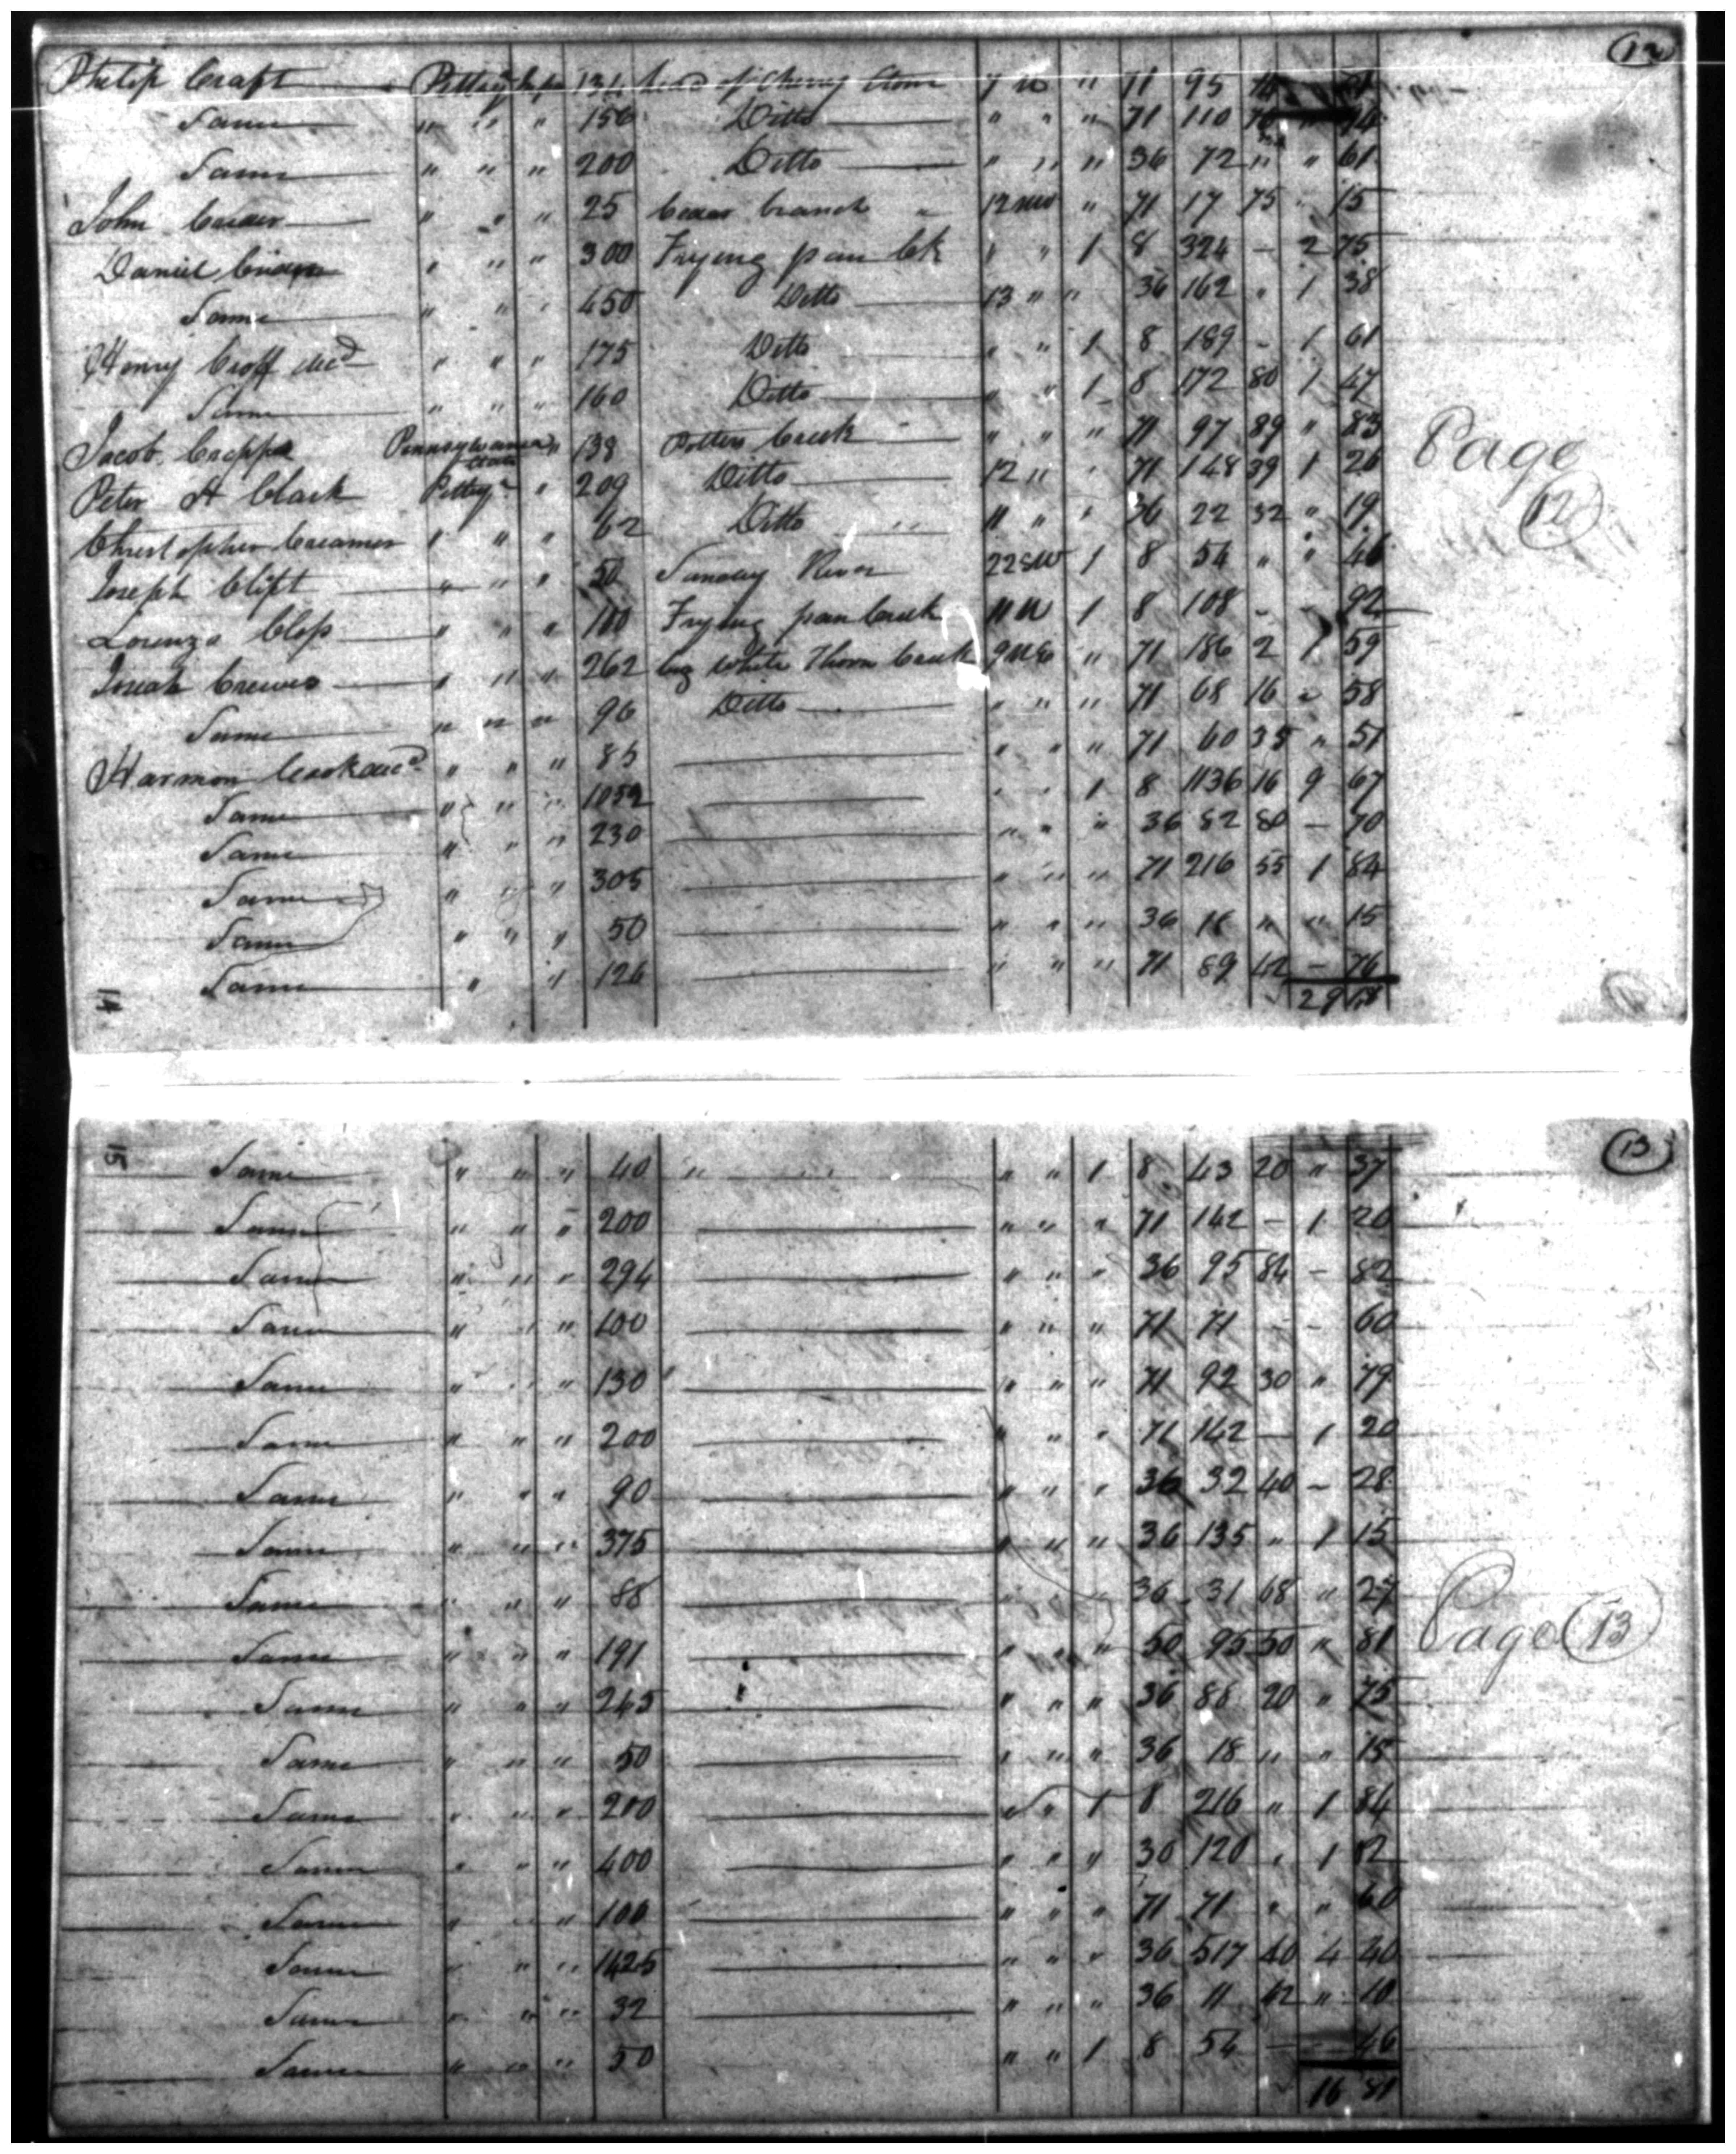 12
Philip Craft Pittsya 134 head of Cherry Stone 7 W " 71 95
Same " " " 156 Ditto " " " 71 110
Same " " " 200 Ditto " " " 36 72 " " 61
John " " " 25 branch " 12 NW " 71 17 75 " 15
Daniel " " " 300 Frying pan Ck " " 1 8 324 - 2 75
Same " " " 450 Ditto 13 " " 36 162 " 1 38
Henry Croff decd " " " 175 Ditto " " 1 8 189 - 1 61
Same " " " 160 Ditto " " 1 8 172 80 1 47
Jacob Cropps Pennsylvania State " 138 Potters Creek " " " 71 97 89 " 83
Peter H Clark Pittsya " 209 Ditto 12 " " 71 148 39 1 26
Christopher Creamer " " " 62 Ditto 11 " " 36 22 32 " 19
Joseph Clift " " " 50 Sandy River 22 SW 1 8 54 " " 46
Lorenzo Closs " " " 100 Frying pan Creek 11 W 1 8 108 - - 92
Josiah Crews " " " 262 big white Thorn Creek 9 NE " 71 186 2 1 59
Same " " " 96 Ditto " " " 71 68 16 " 58
Harmon Cook decd " " " 85 " " " 71 60 35 " 51
Same " " " 1052 " " 1 8 1136 16 9 67
Same " " " 230 " " " 36 82 80 - 70
Same " " " 305 " " " 71 216 55 1 84
Same " " " 50 " " " 36 18 " " 15
Same " " 126 " " " 71 89 42 - 76
14
Page
12
15 13
Same " " " 40 " " " " " 1 8 43 20 " 37
Same " " " 200 " " " 71 142 - 1 20
Same " " " 294 " " " 36 95 84 - 82
Same " " " 100 " " " 71 71 - - 60
Same " " " 130 " " " 71 92 30 " 79
Same " " " 200 " " " 71 142 - 1 20
Same " " " 90 " " " 36 32 40 - 28
Same " " " 375 " " " 36 135 " 1 15
Same " " " 88 " " " 36 31 68 " 27
Same " " " 191 " " " 50 95 50 " 81
Same " " " 245 " " " 36 88 20 " 75
Same " " " 50 " " " 36 18 " " 15
Same " " " 200 " " 1 8 216 " 1 84
Same " " " 400 " " " 30 120 " 1 02
Same " " " 100 " " " 71 71 " " 60
Same " " " 1425 " " " 36 517 40 4 40
Same " " " 32 " " " 36 11 42 " 10
Same " " " 50 " " 1 8 54 - - 46
16 81
Page 13